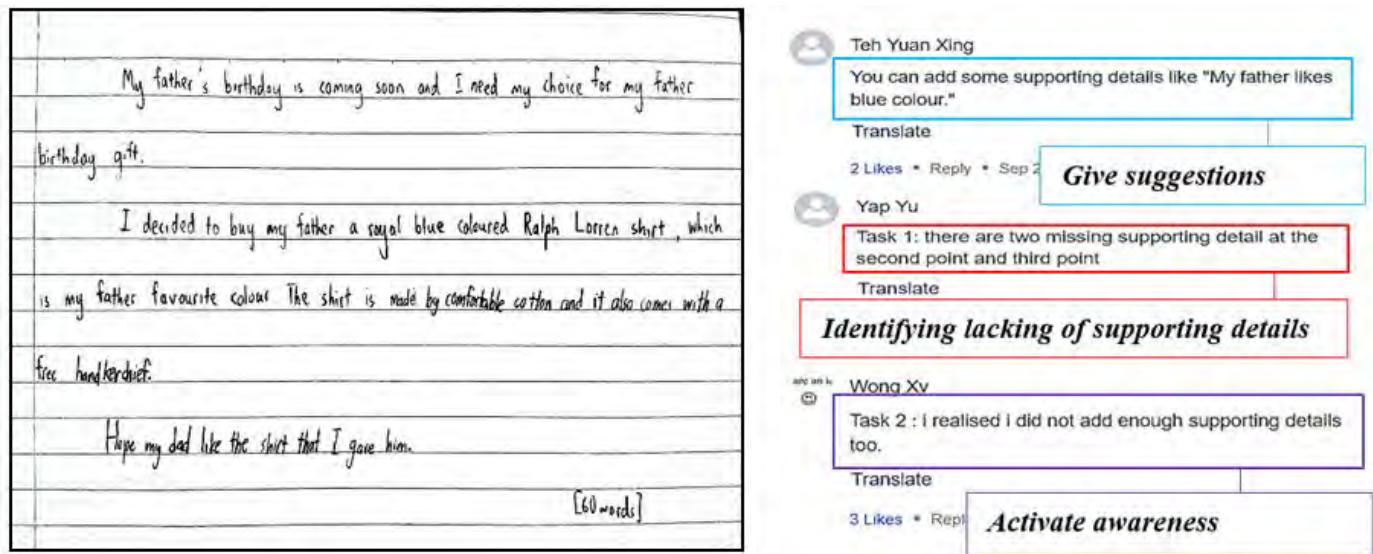 My father's birthday is coming soon and I need my choice for my father
birthday gift.
I decided to buy my father a royal blue coloured Ralph Lorren shirt, which
is my father favourite colour. The shirt is made by comfortable cotton and it also comes with a
free handkerchief.
Hope my dad like the shirt that I gave him.
[60 words]
Teh Yuan Xing
You can add some supporting details like "My father likes
blue colour."
Translate
2 Likes • Reply • Sep 2
Give suggestions
Yap Yu
Task 1: there are two missing supporting detail at the
second point and third point
Translate
Identifying lacking of supporting details
Wong Xv
Task 2 : i realised i did not add enough supporting details
too.
Translate
3 Likes • Repl
Activate awareness